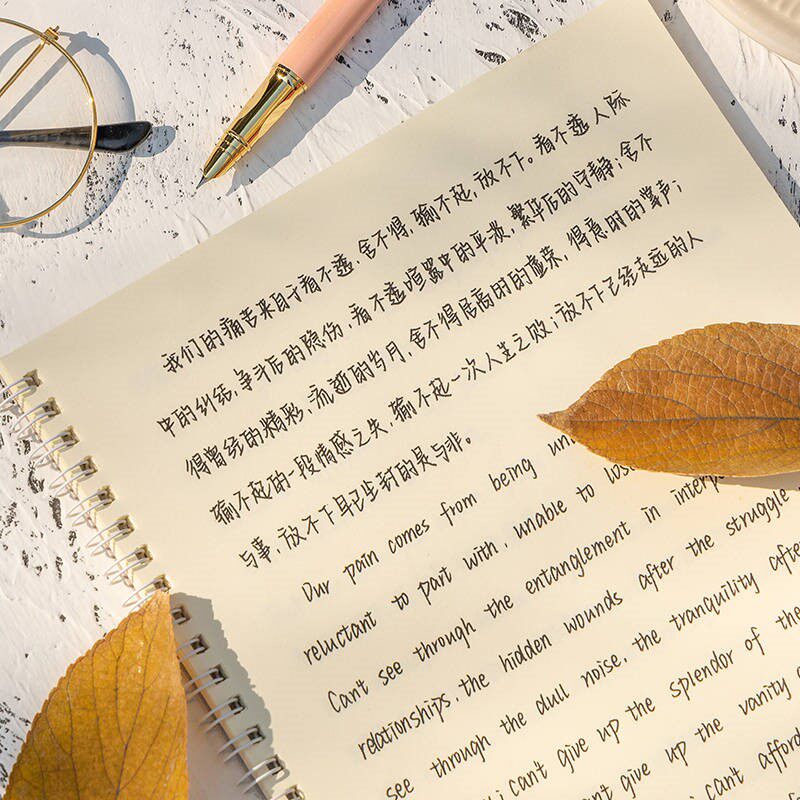 我们的痛苦来自于看不透,舍不得,输不起,放不下。看不透人际
中的纠结,争斗后的隐伤,看不透喧嚣中的平淡,繁华后的宁静;舍不
得曾经的精彩,流逝的岁月,舍不得居高时的虚荣,得意时的掌声;
输不起的一段情感之失,输不起一次人生之败;放不下已经走远的人
与事,放不下早已尘封的是与非。
Our pain comes from being
reluctant to part with, unable to lose
Can't see through the entanglement in
relationships, the hidden wounds after the struggle
see through the dull noise, the tranquility after
can't give up the splendor of the
give up the vanity
can't afford